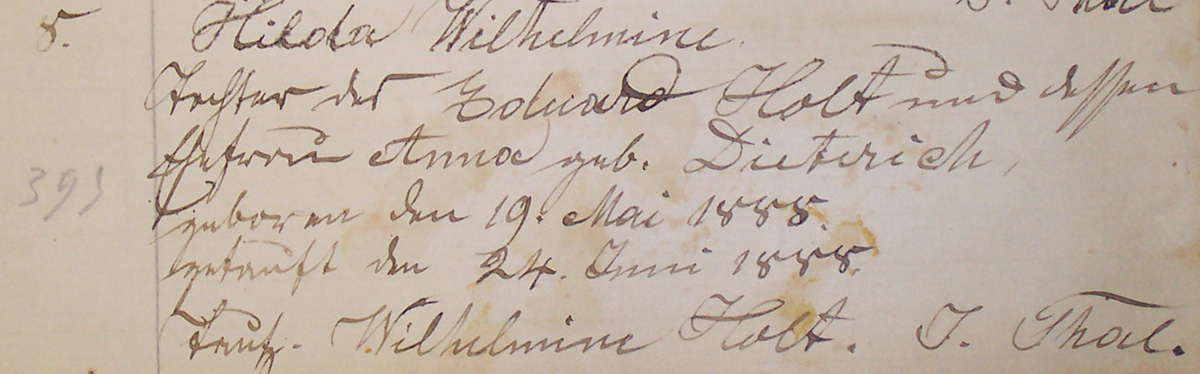 J. Thal
8. Hilda Wilhelmine.
Tochter des Eduard Holt und dessen
Ehefrau Anna geb. Dieterich,
geboren den 19. Mai 1888.
getauft den 24. Juni 1888.
Taufz. Wilhelmine Holt. J. Thal.